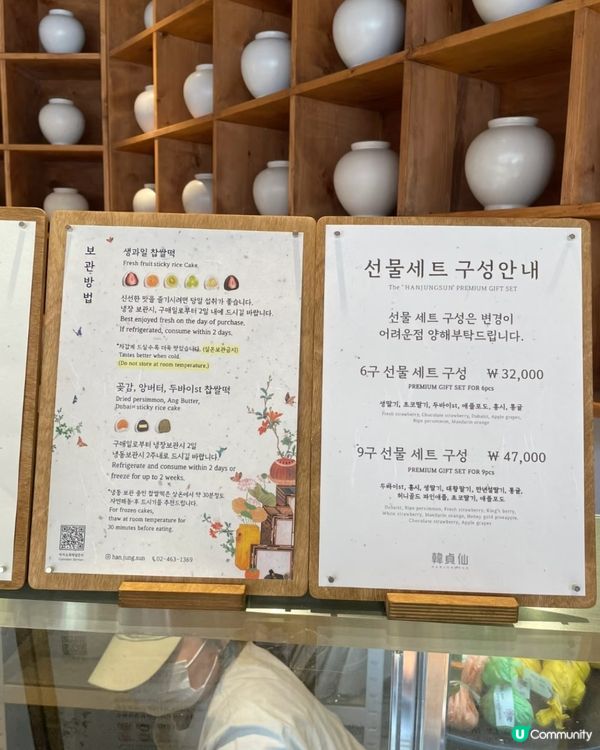 보관방법
생과일 찹쌀떡
Fresh fruit sticky rice Cake
신선한 맛을 즐기시려면 당일 섭취가 좋습니다.
냉장 보관시, 구매일로부터 2일 내에 드시길 바랍니다.
Best enjoyed fresh on the day of purchase.
If refrigerated, consume within 2 days.
*차갑게 드실수록 더욱 맛있습니다. (실온보관금지)
Tastes better when cold.
(Do not store at room temperature.)
곶감, 앙버터, 두바이st 찹쌀떡
Dried persimmon, Ang Butter,
Dubaist sticky rice cake
구매일로부터 냉장보관시 2일
냉동보관시 2주내로 드시길 바랍니다.
Refrigerate and consume within 2 days or
freeze for up to 2 weeks.
*냉동 보관 중인 찹쌀떡은 상온에서 약 30분정도
자연해동 후 드시기를 추천드립니다.
For frozen cakes,
thaw at room temperature for
30 minutes before eating.
han.jung.sun 02-463-1369
선물세트 구성안내
The "HANJUNGSUN" PREMIUM GIFT SET
선물 세트 구성은 변경이
어려운점 양해부탁드립니다.
6구 선물 세트 구성 ₩ 32,000
PREMIUM GIFT SET FOR 6pcs
생딸기, 초코딸기, 두바이st, 애플포도, 홍시, 통귤
Fresh strawberry, Chocolate strawberry, Dubaist, Apple grapes,
Ripe persimmon, Mandarin orange
9구 선물 세트 구성 ₩ 47,000
PREMIUM GIFT SET FOR 9pcs
두바이st, 홍시, 생딸기, 대왕딸기, 만년설딸기, 통귤,
허니골드 파인애플, 초코딸기, 애플포도
Dubaist, Ripe persimmon, Fresh strawberry, King's berry,
White strawberry, Mandarin orange, Honey gold pineapple,
Chocolate strawberry, Apple grapes
韓貞仙
HANJUNGSUN
U Community